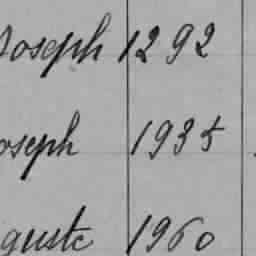 Joseph 1292
oseph 1935
guste 1960